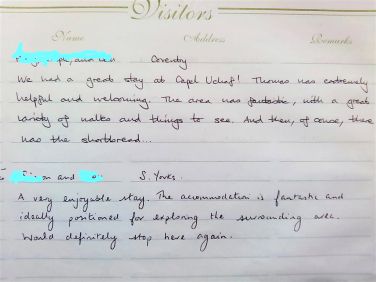 Visitors
Name Address Remarks
Coventry
We had a great stay at Capel Uchaf! Thomas was extremely
helpful and welcoming. The area was fantastic, with a great
variety of walks and things to see. And then, of course, there
was the shortbread...
and S. Yorks.
A very enjoyable stay. The accommodation is fantastic and
ideally positioned for exploring the surrounding area.
Would definitely stop here again.